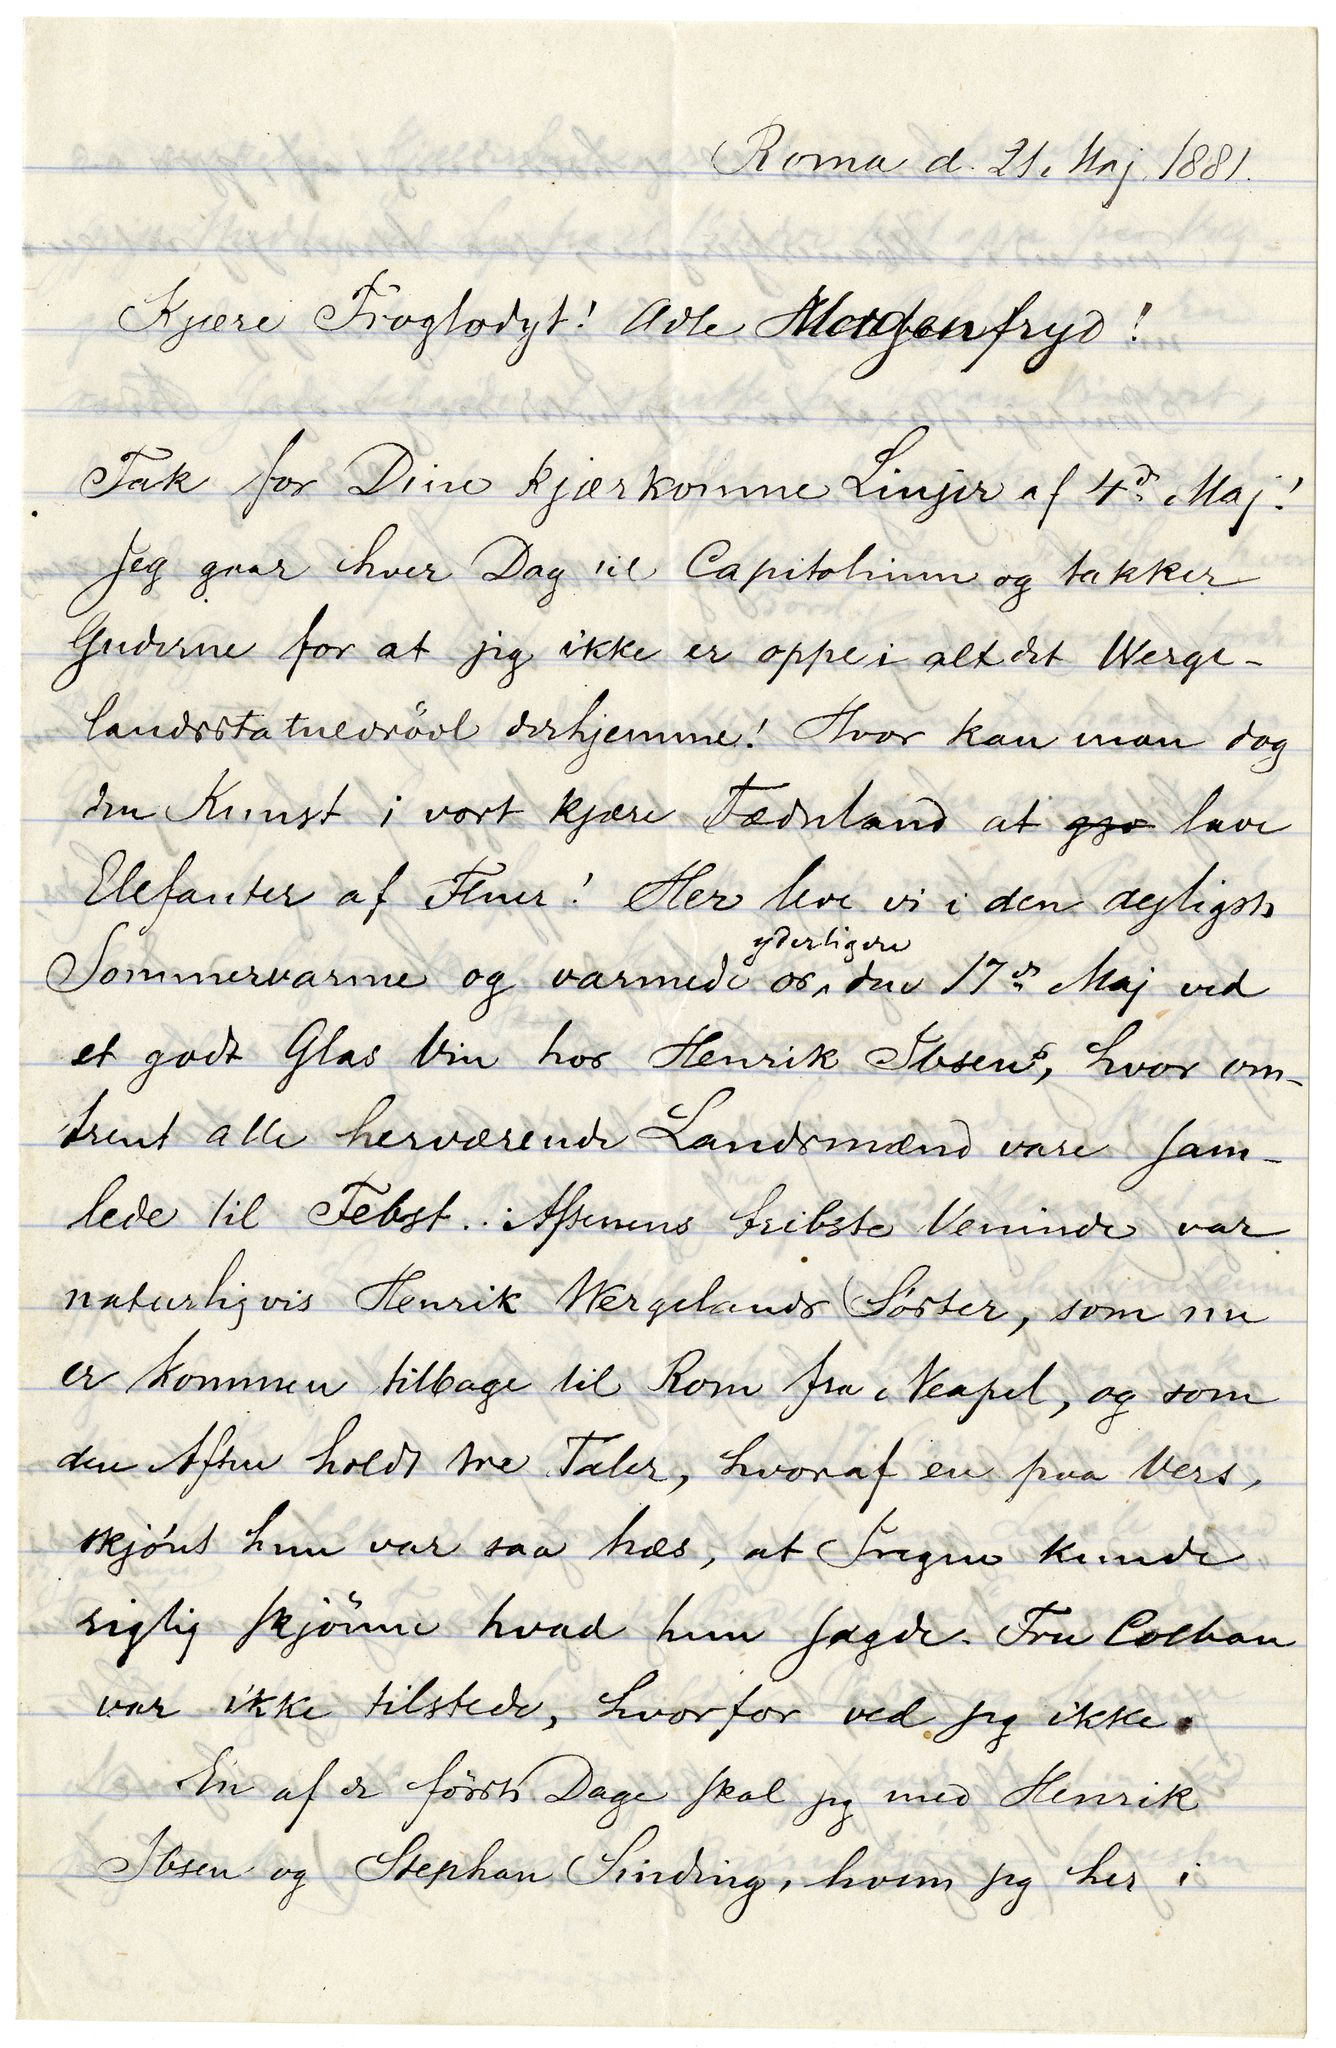 Roma d. 21. Maj 1881.
Kjære Troglodyt! Ædle Morgenfryd!
Tak for Dine kjærkomne Linjer af 4d: Maj!
Jeg gaar hver Dag til Capitolium og takker
Guderne for at jeg ikke er oppe i alt det Werge-
landsstatuedrövl derhjemme! Hvor kan man dog
den Kunst i vort kjære Fædreland at gjø lave
Elefanter af Fluer! Her leve vi i den dejligste
Sommervarme og varmede os yderligere den 17de Maj ved
et godt Glas Vin hos Henrik Ibsens, hvor om-
trent alle herværende Landsmænd vare sam-
lede til Febst. Aftenens bribste Veninde var
naturligvis Henrik Wergelands Søster, som nu
er kommen tilbage til Rom fra Neapel, og som
den Aften holdt tre Taler, hvoraf en paa Vers,
skjønt hun var saa hæs, at Ingen kunde
rigtig skjönne hvad hun sagde. Fru Colban
var ikke tilstede, hvorfor ved jeg ikke.
En af de förste Dage skal jeg med Henrik
Ibsen og Stephan Sinding, hvem jeg her i